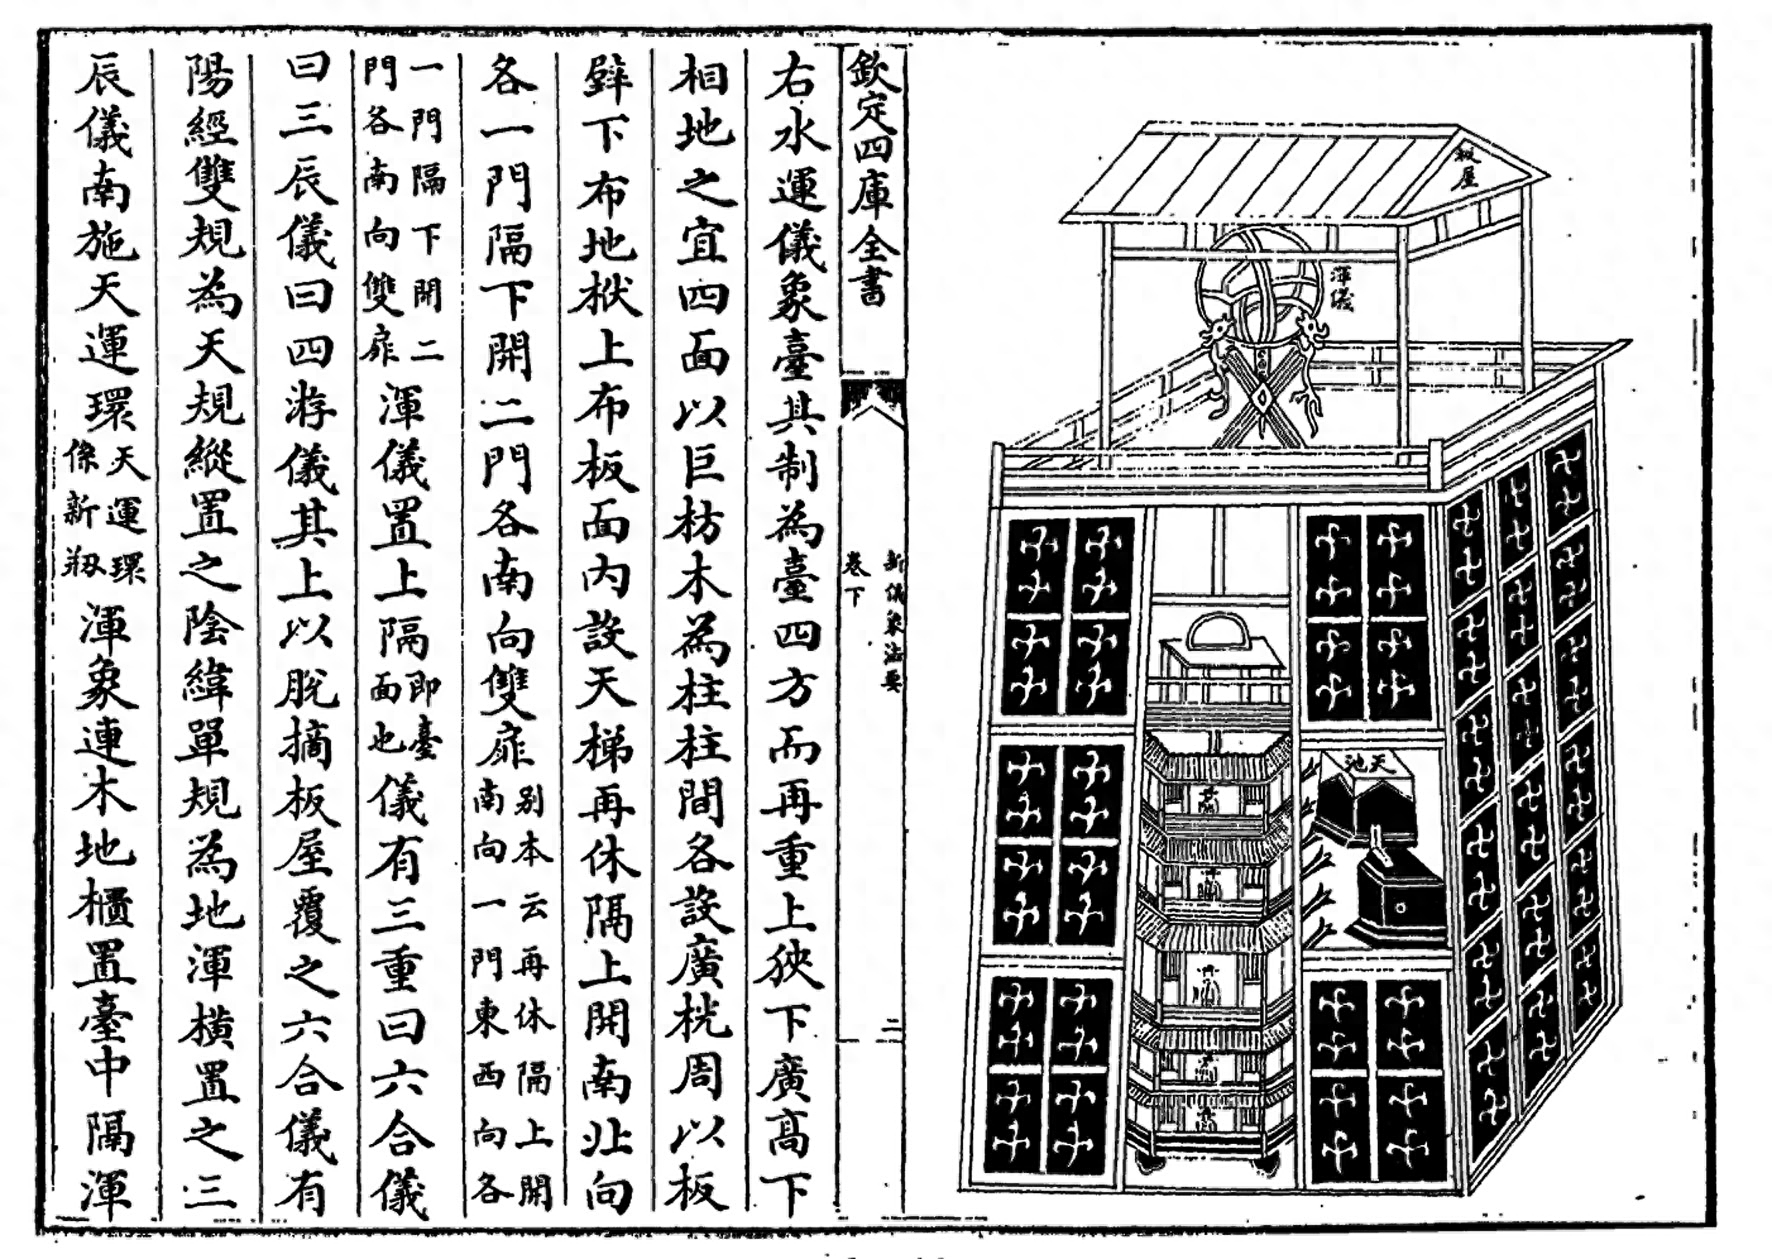 板屋
渾儀
天池
欽定四庫全書
新儀象法要
卷下
二
右水運儀象臺其制為臺四方而再重上狹下廣髙下
相地之宜四面以巨枋木為柱柱間各設廣桄周以板
壁下布地栿上布板面内設天梯再休隔上開南北向
各一門隔下開二門各南向雙扉别本云再休隔上開南向一門東西向各
一門隔下開二門各南向雙扉渾儀置上隔即臺面也儀有三重曰六合儀
曰三辰儀曰四游儀其上以脱摘板屋覆之六合儀有
陽經雙規為天規縱置之陰緯單規為地渾横置之三
辰儀南施天運環天運環係新剏渾象連木地櫃置臺中隔渾